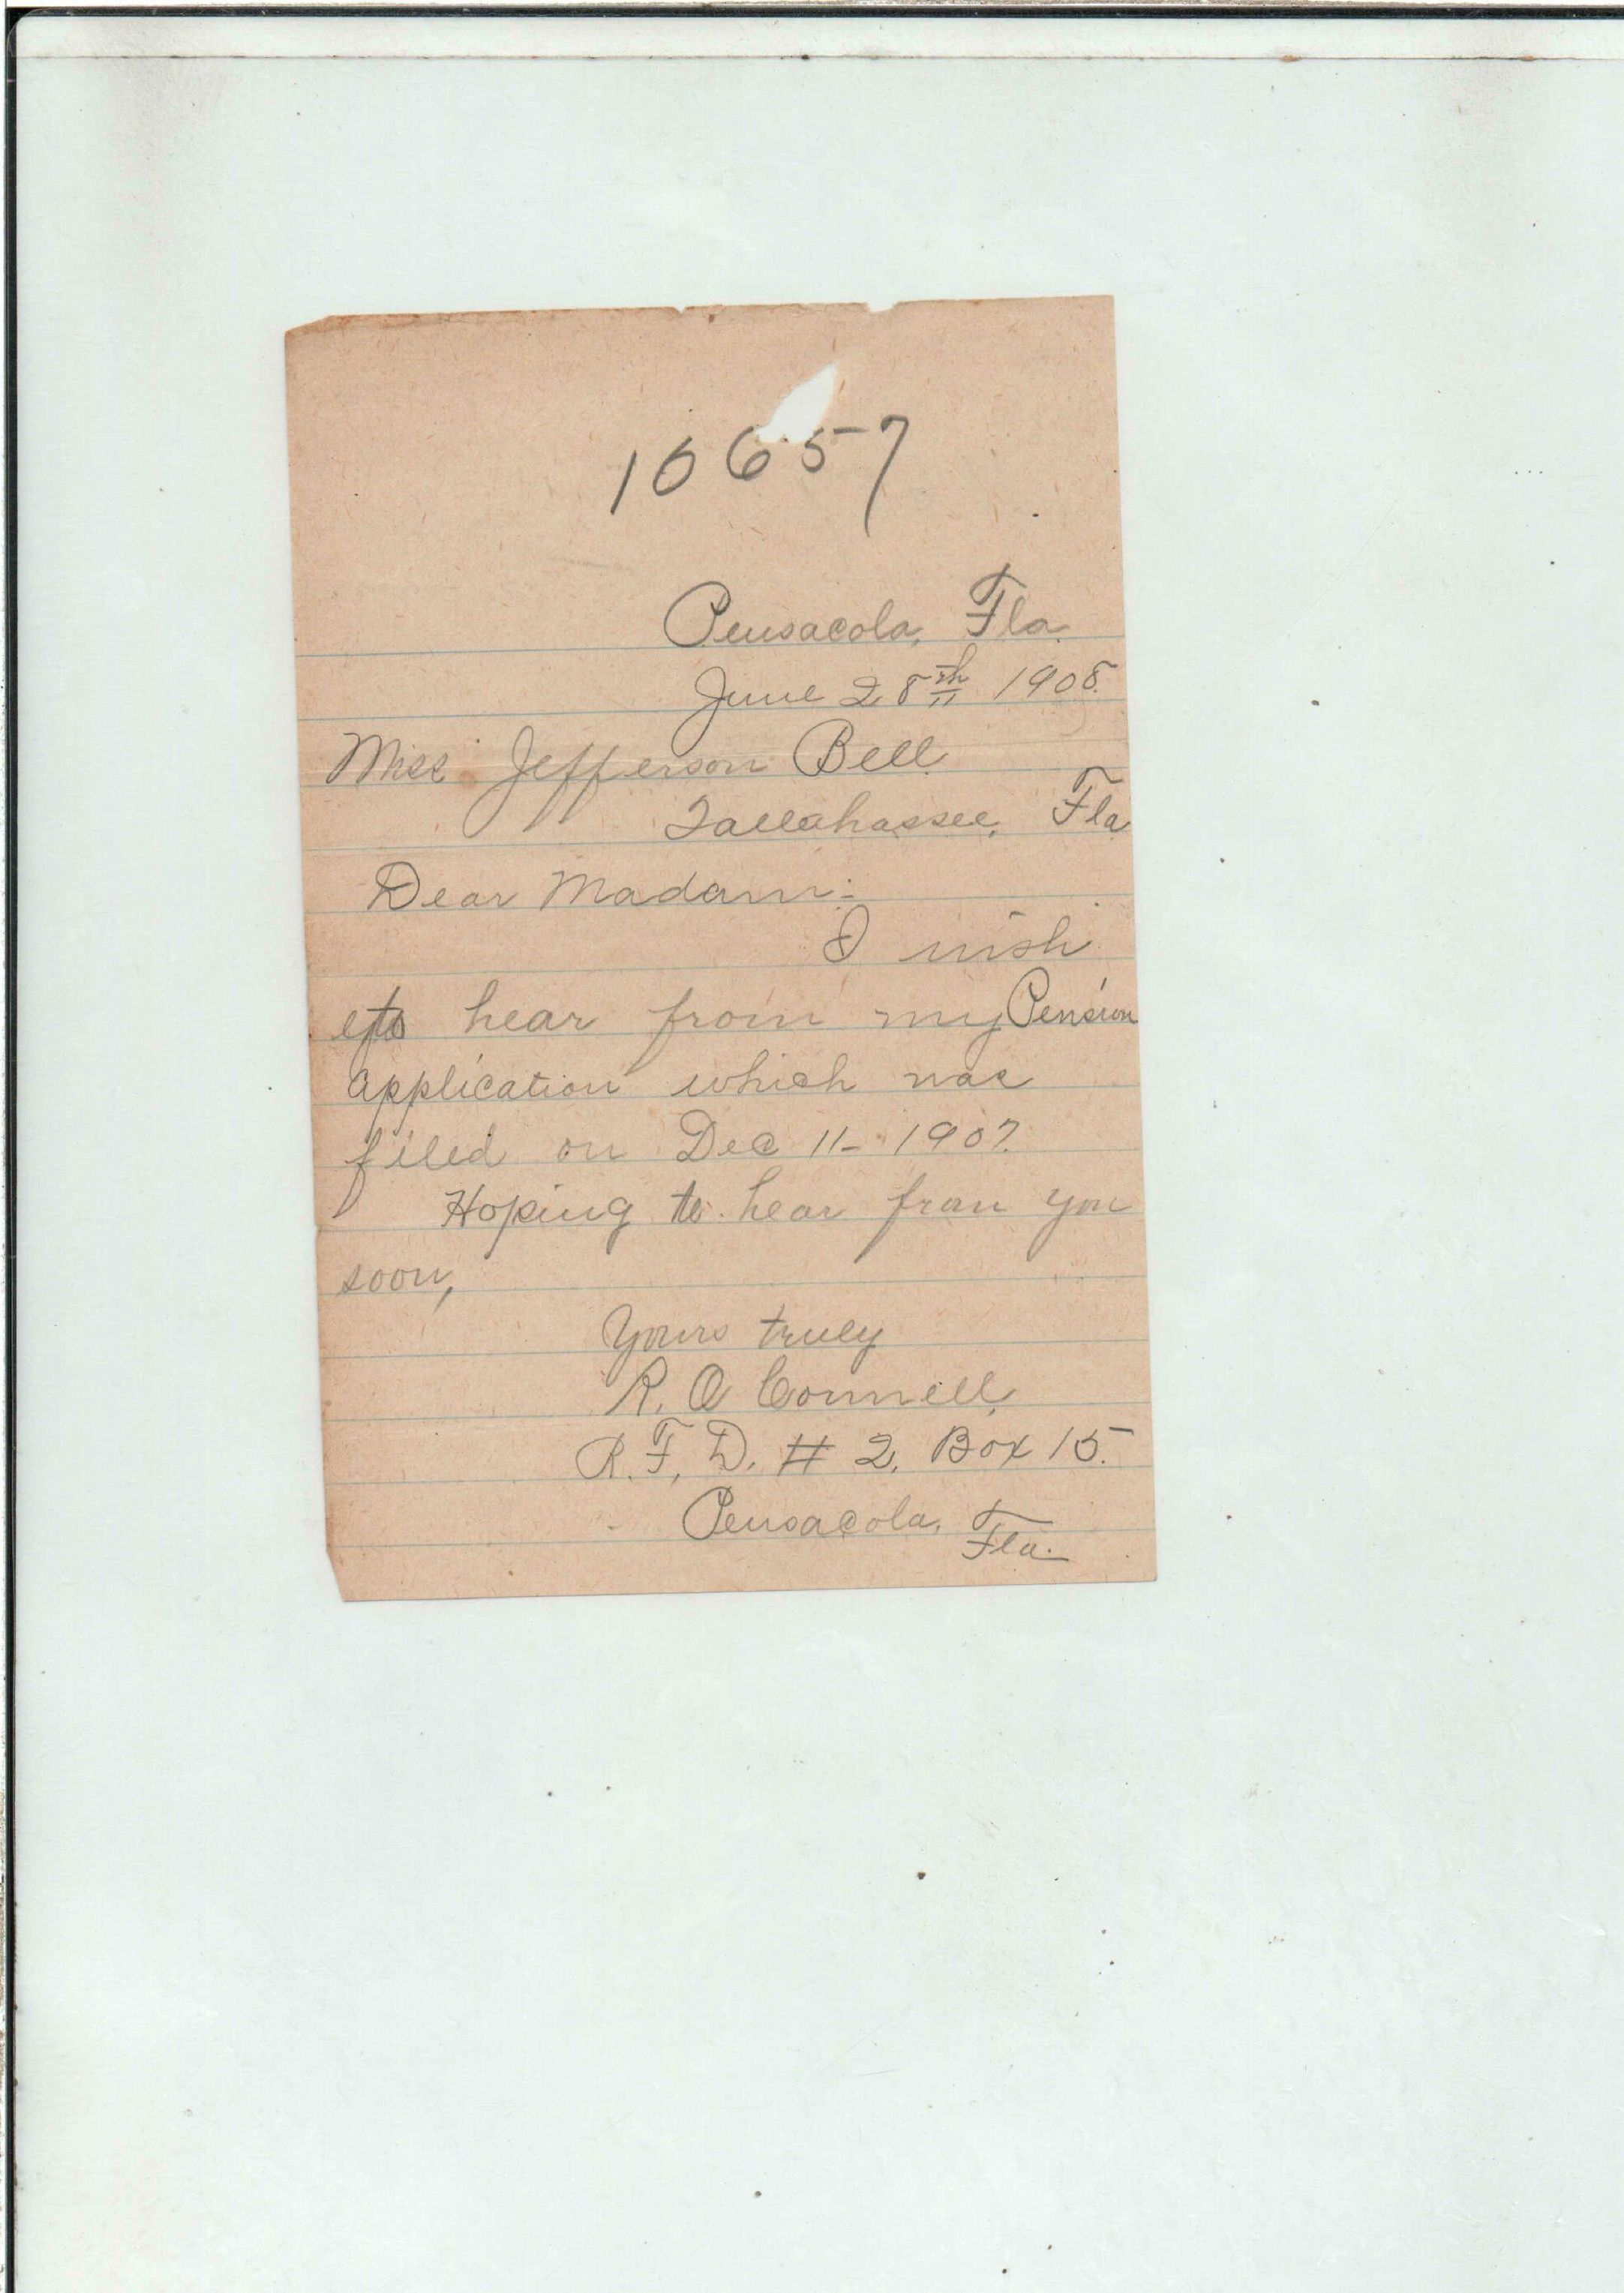 10657
Pensacola, Fla.
June 28th 1908.
Miss Jefferson Bell
Tallahassee, Fla
Dear Madam:
I wish
to hear from my Pension
application which was
filed on Dec 11- 1907.
Hoping to hear from you
soon,
Yours truly
R. O Connell,
R. F. D. # 2, Box 15.
Pensacola, Fla.